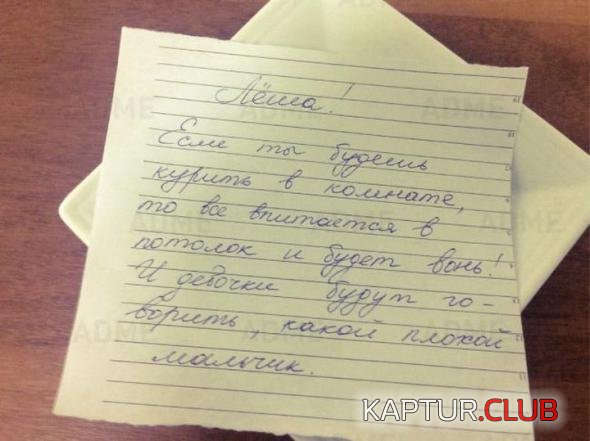 Лёша!
Если ты будешь
курить в комнате,
то все впитается в
потолок и будет вонь!
И девочки будут го-
ворить, какой плохой
мальчик.
ADME
ADME
ADME
ADME
ADME
KAPTUR.CLUB